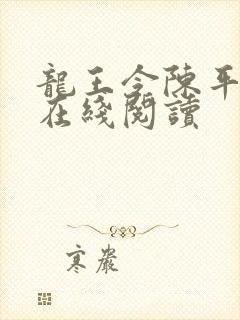 龍王令陳平
在綫閱讀
寒嚴